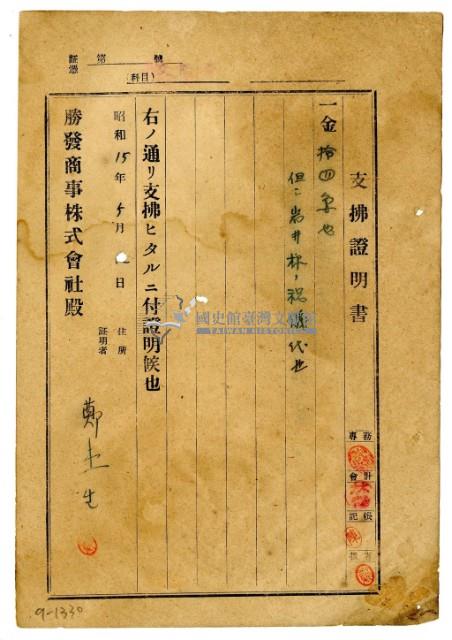 證憑 第 號
(科目)
支拂證明書
一金 拾四円也
右ノ通リ支拂ヒタルニ付證明候也
昭和 15 年 5 月 日
住所
証明者
鄭 生
勝發商事株式會社殿
專務
會計
記帳
國史館臺灣文獻館
TAIWAN HISTORICA
9-1330